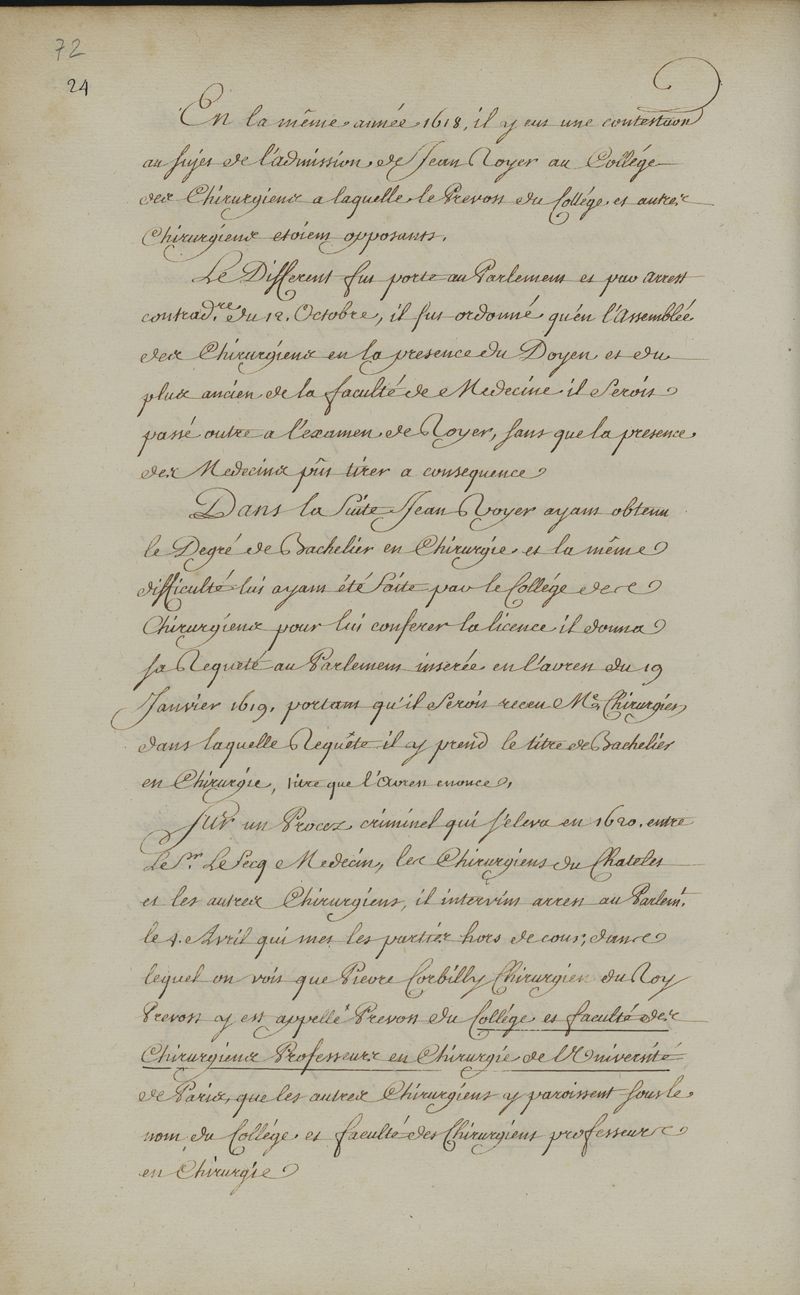 72
24
En la même année 1618, il y eut une contestaon
au sujet de l'admission de Jean Royer au Collége
des Chirurgiens a laquelle le Prevost du Collége et autres
Chirurgiens etoient opposants.
Le Different fut porte au Parlement et par arrest
contrad.re du 12. Octobre, il fut ordonné qu'en l'Assemblée
des Chirurgiens en la presence du Doyen et du
plus ancien de la faculté de Medecine il Seroit
passé outre a l'examen de Royer, sans que la presence
des Medecins pût tirer a consequence
Dans la Suite Jean Royer ayant obtenu
le Degré de Bachelier en Chirurgie et la même
difficulté lui ayant été faite par le Collége des
Chirurgiens pour lui conferer la licence il donna
sa Requete au Parlement inserée en l'arrest du 19
Janvier 1619, portant qu'il Seroit receu Me. Chirurgien
dans laquelle Requête il y prend le titre de Bachelier
en Chirurgie, titre que l'Arrest enonce,
Sur un Procez criminel qui s'eleva en 1620, entre
Le Sr. Le Secq Medecin, les Chirurgiens du Chatelet
et les autres Chirurgiens, il intervint arrest au Parlemt.
le 4. Avril qui met les parties hors de cour; dans
lequel on voit que Pierre Corbilly Chirurgien du Roy
Prevost y est appellé Prevost du Collége et faculté des
Chirurgiens Professeurs en Chirurgie de l'Université
de Paris, que les autres Chirurgiens y paroissent sous le
nom du Collége et faculté des Chirurgiens professeurs
en Chirurgie